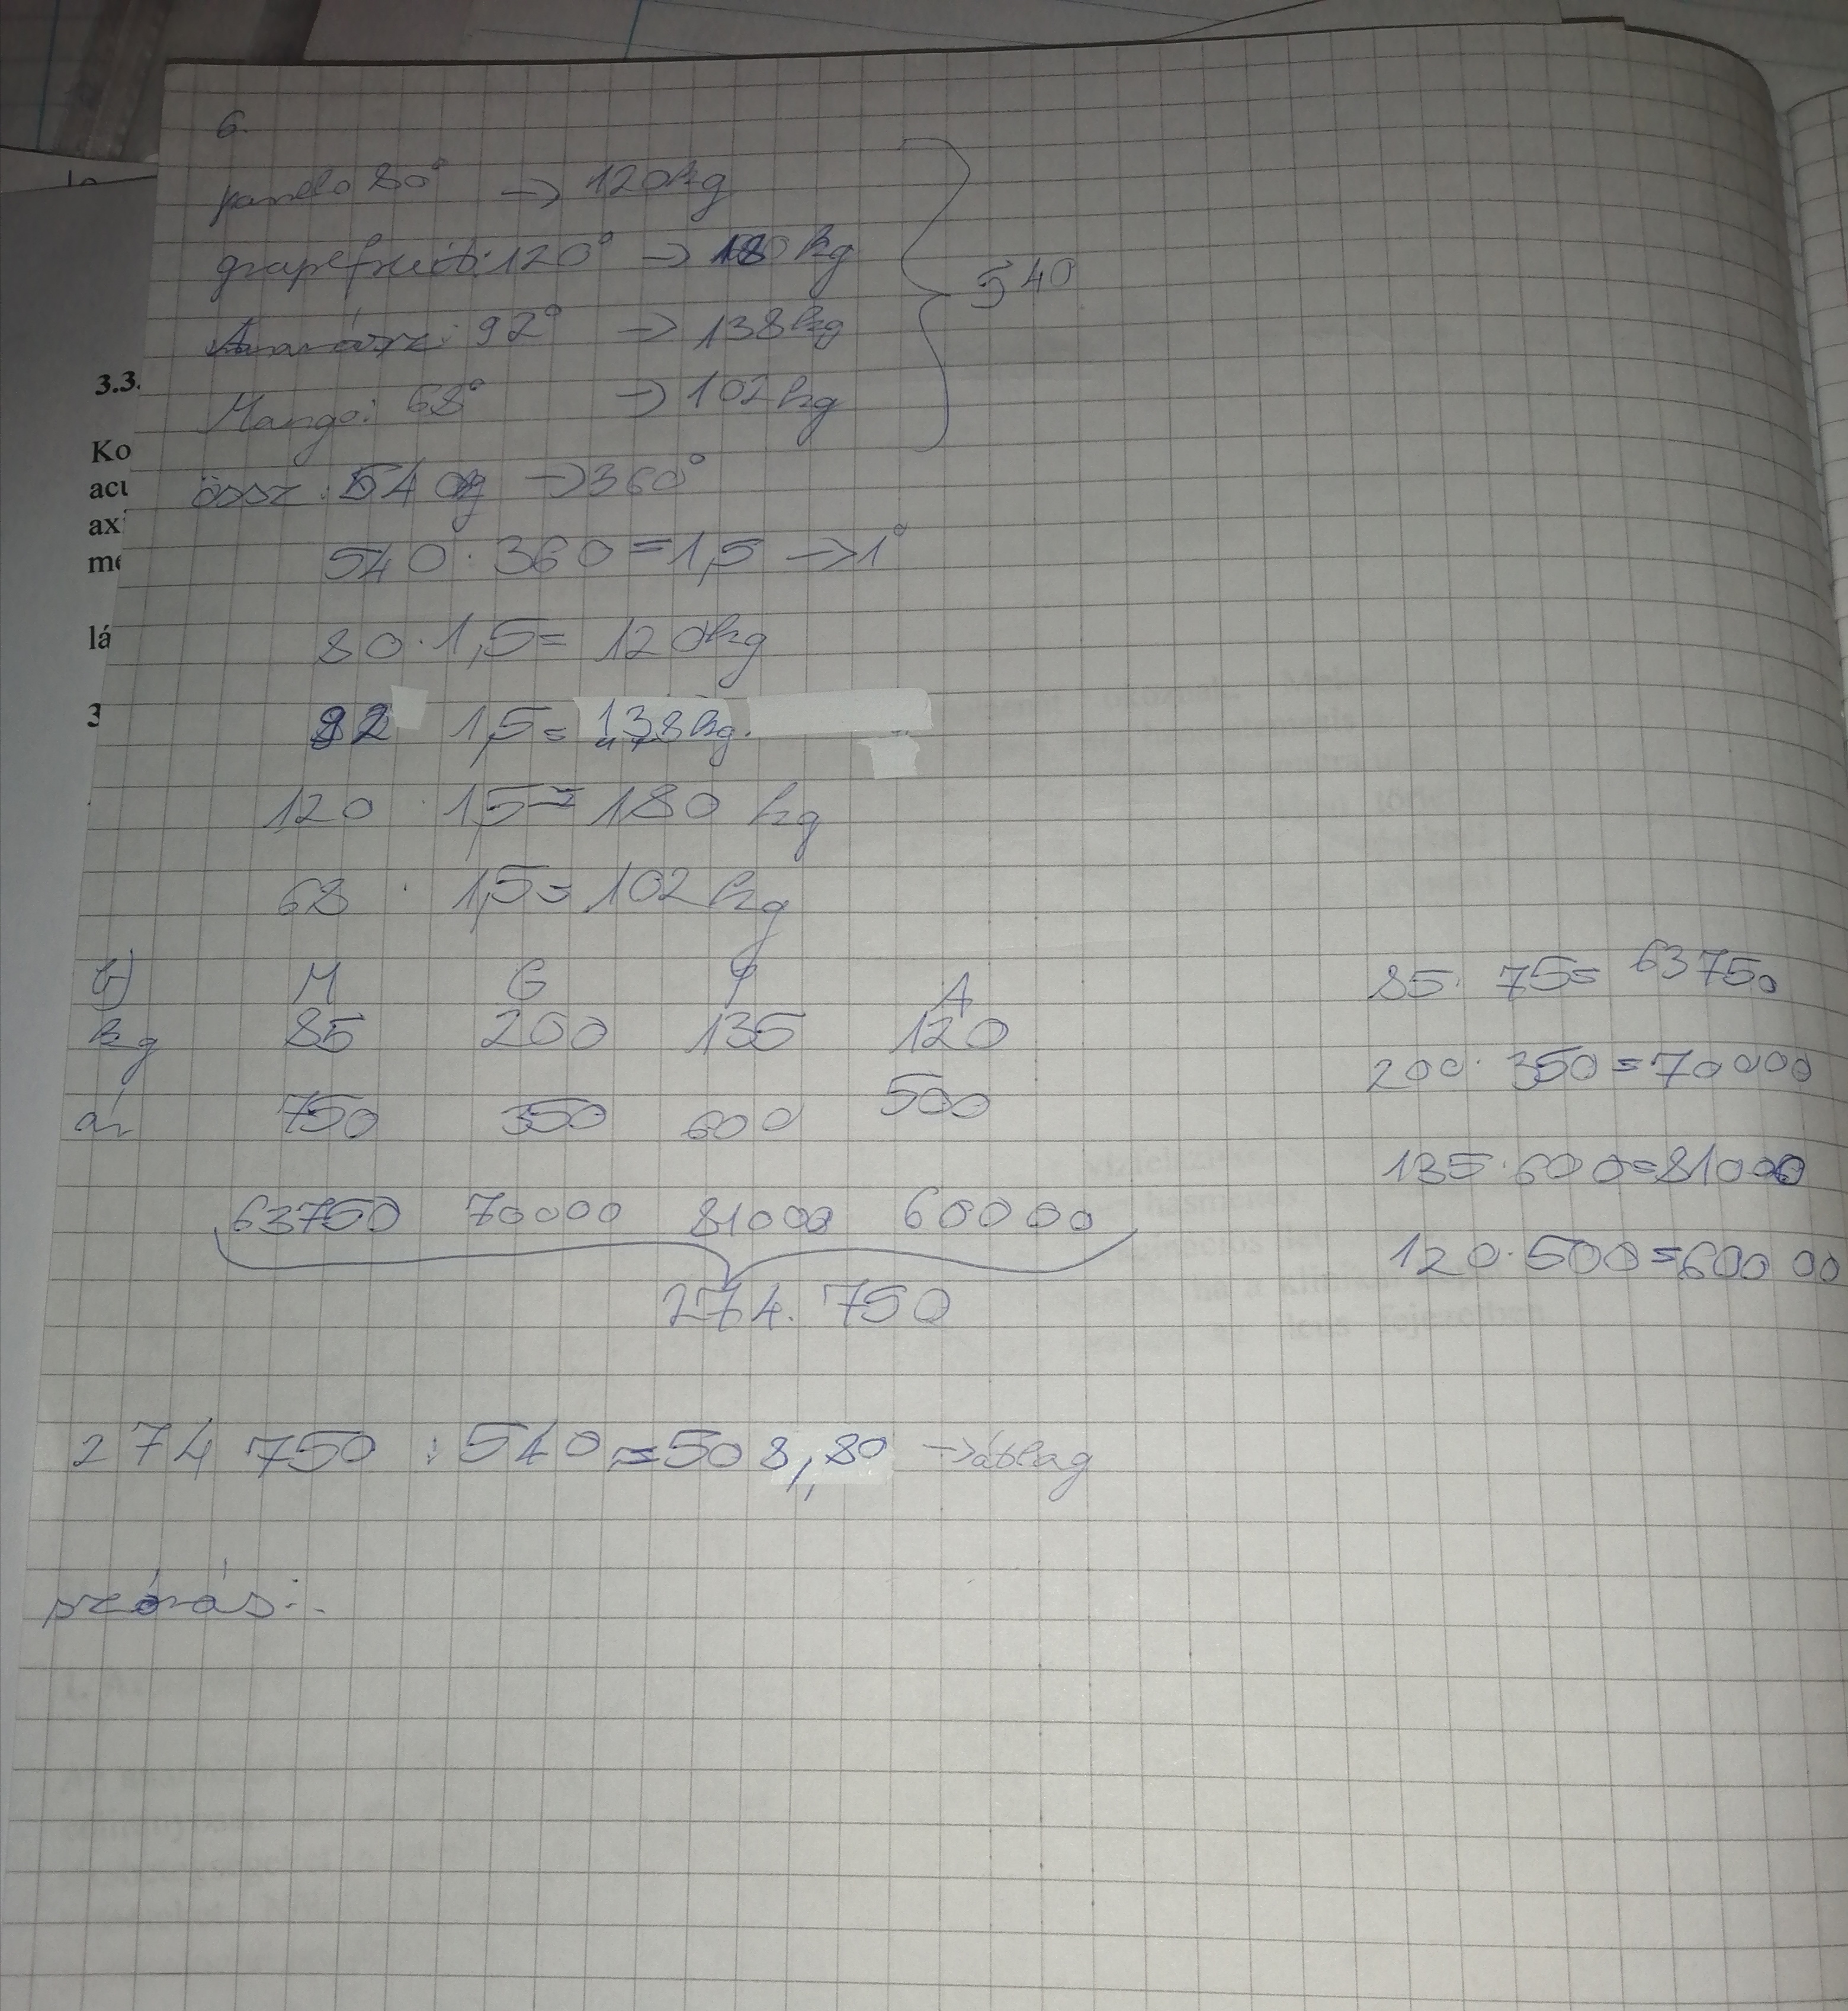 6.
pomelo 80° → 120kg
grapefruit: 120° → 180 kg
Ananász: 92° → 138kg
Mango: 68° → 102kg
540
össz: 540 kg → 360°
540 : 360 = 1,5 → 1°
80 · 1,5 = 120kg
92 1,5 = 138kg.
120 · 1,5 = 180 kg
68 · 1,5 = 102 kg
b) M G P A
kg 85 200 135 120
ár 750 350 600 500
63750 70000 81000 60000
274.750
85 · 75= 63750
200 · 350 = 70000
135 · 600 = 81000
120 · 500 = 60000
274 750 : 540 = 508,80 → átlag
szórás:
3.3.
Ko
acu
ax
me
lá
3